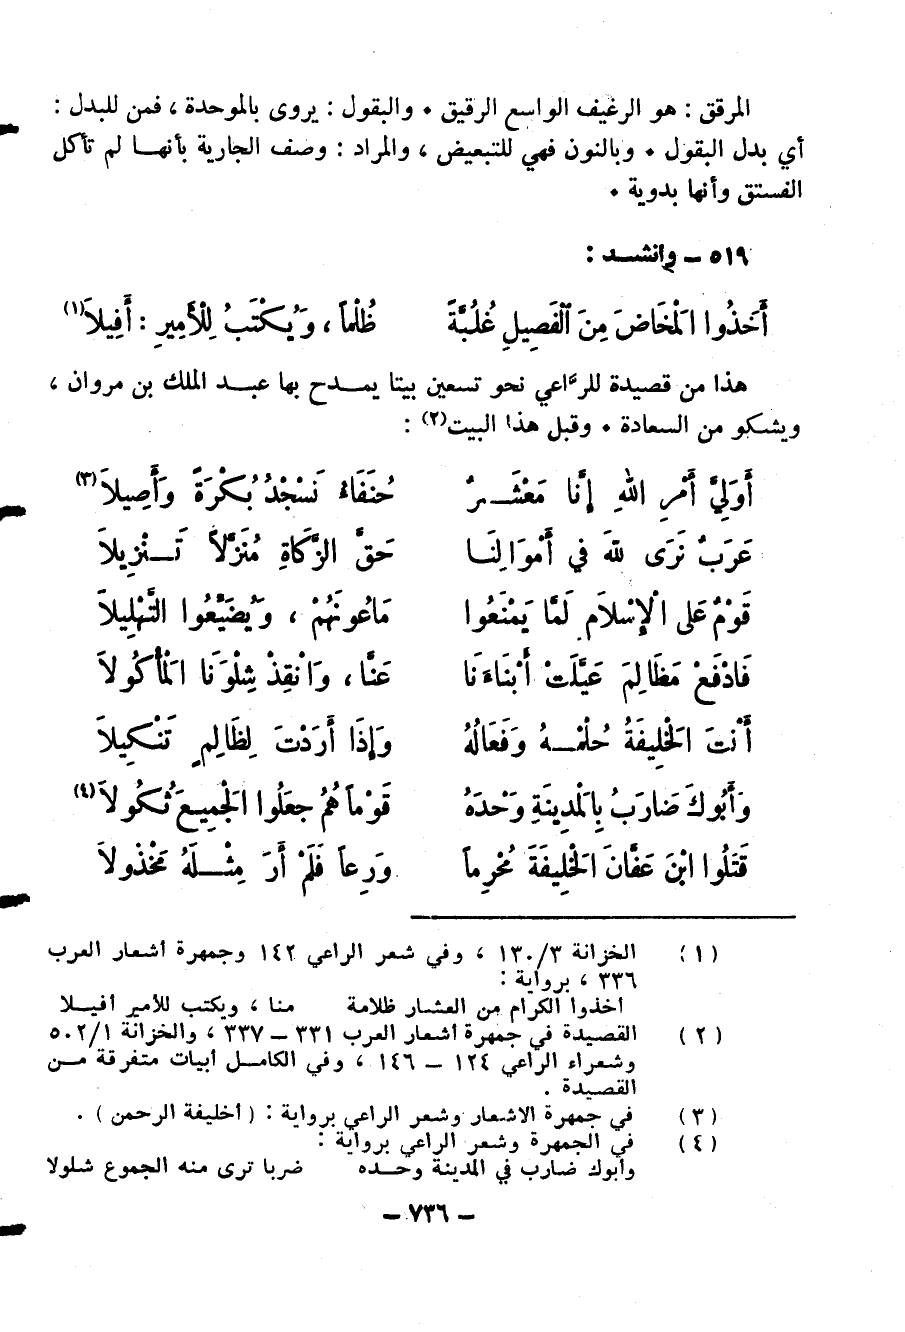 المرقق : هو الرغيف الواسع الرقيق ٠ والبقول : يروى بالموحدة ، فمن للبدل :
أي بدل البقول ٠ وبالنون فهي للتبعيض ، والمراد : وصف الجارية بأنهـا لم تأكل
الفستق وأنها بدوية ٠
٥١٩ - وأنشـد :
أَخَذُوا المَخَاضَ مِنَ الْفَصِيلِ غُلُبَّةً ظُلْماً ، وَيُكْتَبُ لِلْأَمِيرِ : أَفِيلاَ(١)
هذا من قصيدة للرَّاعي نحو تسعين بيتا يمـدح بها عبـد الملك بن مروان ،
ويشكو من السعادة ٠ وقبل هذا البيت(٢) :
أَوَلِيَّ أَمْرِ اللهِ إِنَّا مَعْشَـرٌ حُنَفَاءُ نَسْجُدُ بُكْرَةً وَأَصِيلاَ(٣)
عَرَبٌ نَرَى للهَ في أَمْوَالِنَـا حَقَّ الزَّكَاةِ مُنَزَّلاً تَـنْزِيلاَ
قَوْمٌ عَلى الْإِسْلاَمِ لَمَّا يَمْنَعُوا مَاعُونَهُمْ ، وَيُضَيِّعُوا التَّهْلِيلاَ
فَادْفَعْ مَظَالِمَ عَيَّلَتْ أَبْنَاءَنَا عَنَّا ، وَانْقِذْ شِلْوَنَا المَأْكُولاَ
أَنْتَ الخَلِيفَةُ حُلْمُـهُ وَفَعَالُهُ وَإِذَا أَرَدْتَ لِظَالِمٍ تَنْكِيلاَ
وَأَبُوكَ ضَارَبُ بِالْمَدِينَةِ وَحْدَهُ قَوْماً هُمُ جعَلُوا الجَمِيعَ ثُكُولاَ(٤)
قَتَلُوا ابْنَ عَفَّانَ الخَلِيفَةَ مُحْرِماً وَرِعاً فَلَمْ أَرَ مِثْـلَهُ مَخْذُولاَ
(١) الخزانة ١٣٠/٣ ، وفي شعر الراعي ١٤٢ وجمهرة أشعار العرب
٣٣٦ ، برواية :
أخذوا الكرام من العشار ظلامة منا ، ويكتب للأمير أفيـلا
(٢) القصيدة في جمهرة أشعار العرب ٣٣١ - ٣٣٧ ، والخزانة ٥٠٢/١
وشعراء الراعي ١٢٤ - ١٤٦ ، وفي الكامـل أبيات متفرقة مـن
القصيدة .
(٣) في جمهرة الاشعار وشعر الراعي برواية : ( أخليفة الرحمن ) .
(٤) في الجمهرة وشعر الراعي برواية :
وأبوك ضارب في المدينة وحـده ضربا ترى منه الجموع شلولا
- ٧٣٦ -